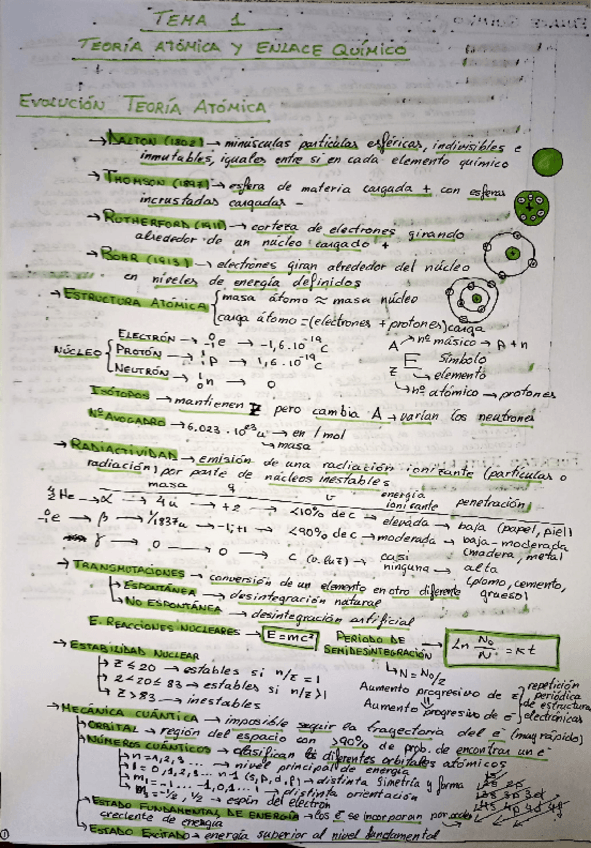 TEMA 1
TEORÍA ATÓMICA Y ENLACE QUÍMICO
EVOLUCIÓN TEORÍA ATÓMICA
→ DALTON (1802) → minúsculas partículas esféricas, indivisibles e
inmutables, iguales entre sí en cada elemento químico
→ THOMSON (1897) → esfera de materia cargada + con esferas
incrustadas cargadas -
→ RUTHERFORD (1911) → corteza de electrones girando
alrededor de un núcleo cargado +
→ BOHR (1913) → electrones giran alrededor del núcleo
en niveles de energía definidos
→ ESTRUCTURA ATÓMICA { masa átomo ≈ masa núcleo
carga átomo = (electrones + protones) carga
NÚCLEO { ELECTRÓN → ⁰₋₁e → -1,6·10⁻¹⁹ C
PROTÓN → ¹₁p → 1,6·10⁻¹⁹ C
NEUTRÓN → ¹₀n → 0
A → nº másico → p + n
E Símbolo
Z → elemento
→ nº atómico → protones
ISÓTOPOS → mantienen Z pero cambia A → varían los neutrones
Nº AVOGADRO → 6,023·10²³ u → en 1 mol
→ masa
→ RADIACTIVIDAD → emisión de una radiación ionizante (partículas o
radiación) por parte de núcleos inestables
masa q v energía ionizante penetración
⁴₂He → α → 4u → +2 → <10% de c → elevada → baja (papel, piel)
⁰₋₁e → β → 1/1837u → -1;+1 → <90% de c → moderada → baja-moderada (madera, metal
γ → 0 → 0 → c (v. luz) → casi ninguna → alta (plomo, cemento, grueso)
→ TRANSMUTACIONES → conversión de un elemento en otro diferente
→ ESPONTÁNEA → desintegración natural
→ NO ESPONTÁNEA → desintegración artificial
E. REACCIONES NUCLEARES → E=mc² PERIODO DE SEMIDESINTEGRACIÓN Ln N₀/N = kt
→ N = N₀/2
→ ESTABILIDAD NUCLEAR
→ Z ≤ 20 → estables si n/z = 1
→ 2<20≤ 83 → estables si n/z >1
→ Z > 83 → inestables
Aumento progresivo de Z
=
Aumento progresivo de e⁻
repetición periódica de estructuras electrónicas
→ MECÁNICA CUÁNTICA → imposible seguir la trayectoria del e⁻ (muy rápido)
→ ORBITAL → región del espacio con >90% de prob. de encontrar un e⁻
→ NÚMEROS CUÁNTICOS → clasifican los diferentes orbitales atómicos
→ n = 1,2,3... → nivel principal de energía
→ l = 0,1,2,3... n-1 (s,p,d,f) → distinta simetría y forma
→ m = -1... -1,0,1... l → distinta orientación
→ ½, -½ → espín del electrón
→ ESTADO FUNDAMENTAL DE ENERGÍA → los e⁻ se incorporan por orden
creciente de energía
→ ESTADO EXCITADO → energía superior al nivel fundamental
1